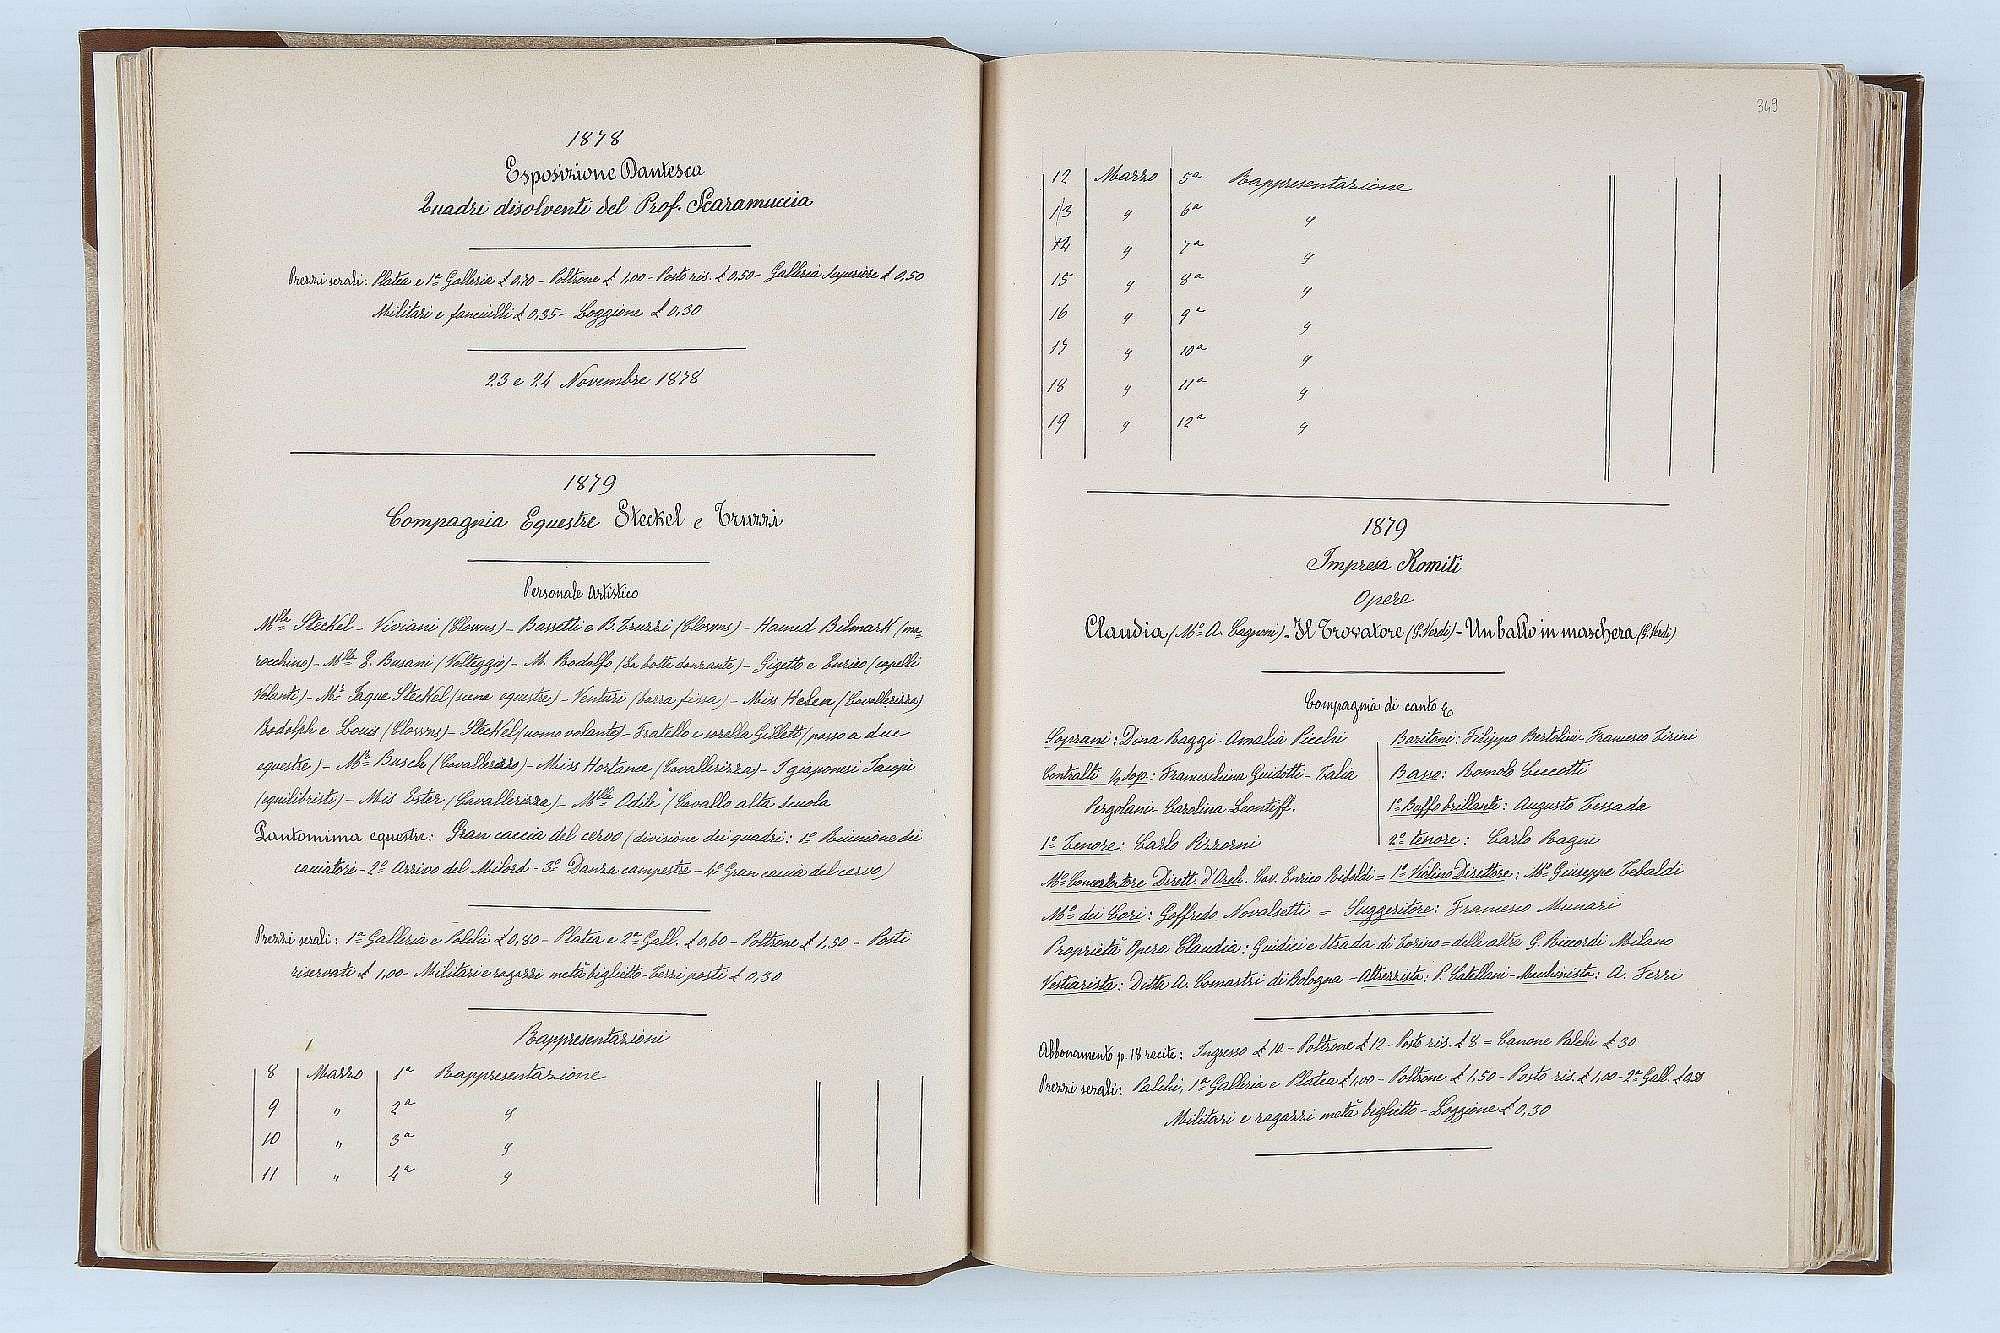 1878
Esposizione Dantesca
Quadri disolventi del Prof. Scaramuccia
Prezzi serali: Platea e 1ª Galleria £ 0,70 - Poltrone £ 1,00 - Posto ris. £ 0,50 - Galleria superiore £ 0,50
Militari e fanciulli £ 0,35 - Loggione £ 0,30
23 e 24 Novembre 1878
1879
Compagnia Equestre Steckel e Truzzi
Personale Artistico
Mlla Steckel - Viviani (Clowns) - Bassetti e B. Truzzi (Clowns) - Hamed Belmark (ma=
rocchino) - Mlla E. Busani (Volteggio) - M. Rodolfo (La botte danzante) - Gigetto e Enrico (capelli
volanti) - Mr. Steckel (scena equestre) - Venturi (barra fissa) - Miss Helen (Cavallerizza)
Rodolph e Louis (Clowns) - Steckel (uomo volante) - Fratello e sorella Gillett (passo a due
equestre) - Mr. Busch (Cavallerizzo) - Miss Hortance (Cavallerizza) - I giaponesi
(equilibristi) - Mis Ester (Cavallerizza) - Mlla Odile (Cavallo alta scuola
Pantomima equestre: Gran caccia del cervo (divisione dei quadri: 1º Riunione dei
cacciatori - 2º Arrivo del Milord - 3º Danza campestre - 4º Gran caccia del cervo)
Prezzi serali: 1ª Galleria e Palchi £ 0,80 - Platea e 2ª Gall. £ 0,60 - Poltrone £ 1,50 - Posti
riservati £ 1,00 - Militari e ragazzi metà biglietto - Terzi posti £ 0,30
Rappresentazioni
8 Marzo 1ª Rappresentazione
9 " 2ª "
10 " 3ª "
11 " 4ª "
349
12 Marzo 5ª Rappresentazione
13 " 6ª "
14 " 7ª "
15 " 8ª "
16 " 9ª "
17 " 10ª "
18 " 11ª "
19 " 12ª "
1879
Impresa Romiti
Opere
Claudia (Mº A. Cagnoni) - Il Trovatore (G. Verdi) - Un ballo in maschera (G. Verdi)
Compagnia di canto &
Soprani: Dina Raggi - Amalia Picchi
Contralti ½ sop: Franceschina Guidotti - Talia
Pergolani - Carolina Leontiff.
1º Tenore: Carlo Pizzorni
Baritoni: Filippo Bertolini - Francesco Tirini
Basso: Romolo Cuccotti
1º Buffo brillante: Augusto Tessada
2º tenore: Carlo Ragni
Mº Concertatore Dirett. d'Orch. Cav. Enrico Riboldi = 1º Violino Direttore: Mº Giuseppe Tebaldi
Mº dei Cori: Goffredo Novalsetti = Suggeritore: Francesco Munari
Proprietà Opera Claudia: Giudici e Strada di Torino = delle altre G. Ricordi Milano
Vestiarista: Ditta A. Comastri di Bologna - Attrezzista: P. Catellani - Machinista: A. Ferri
Abbonamento p. 18 recite: Ingresso £ 10 - Poltrone £ 12 - Posto ris. £ 8 = Canone Palchi £ 30
Prezzi serali: Palchi, 1ª Galleria e Platea £ 1,00 - Poltrone £ 1,50 - Posto ris. £ 1,00 - 2ª Gall. £ 0,80
Militari e ragazzi metà biglietto - Loggione £ 0,30